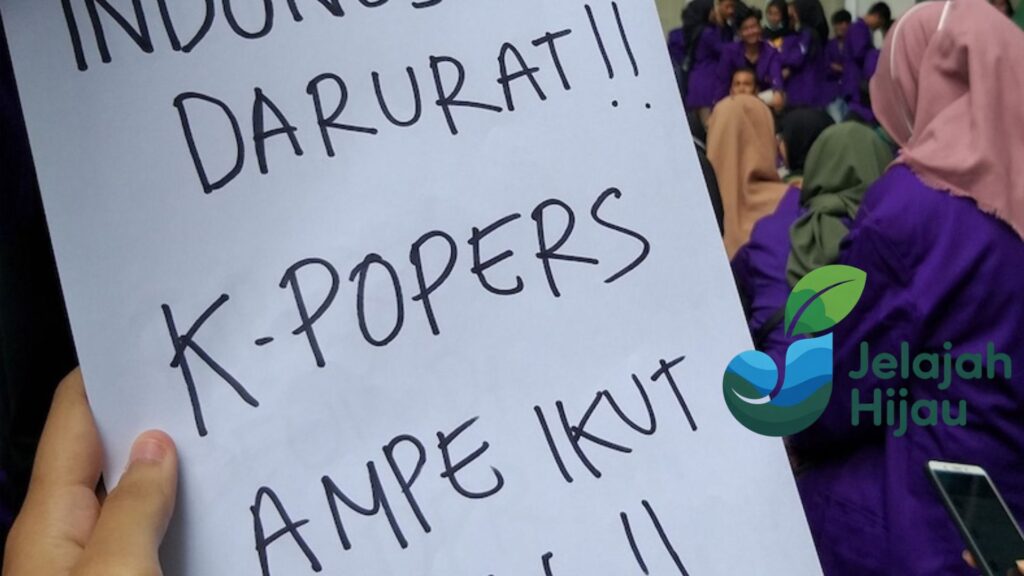 DARURAT!!
K-POPERS
AMPE IKUT
!!
Jelajah
Hijau